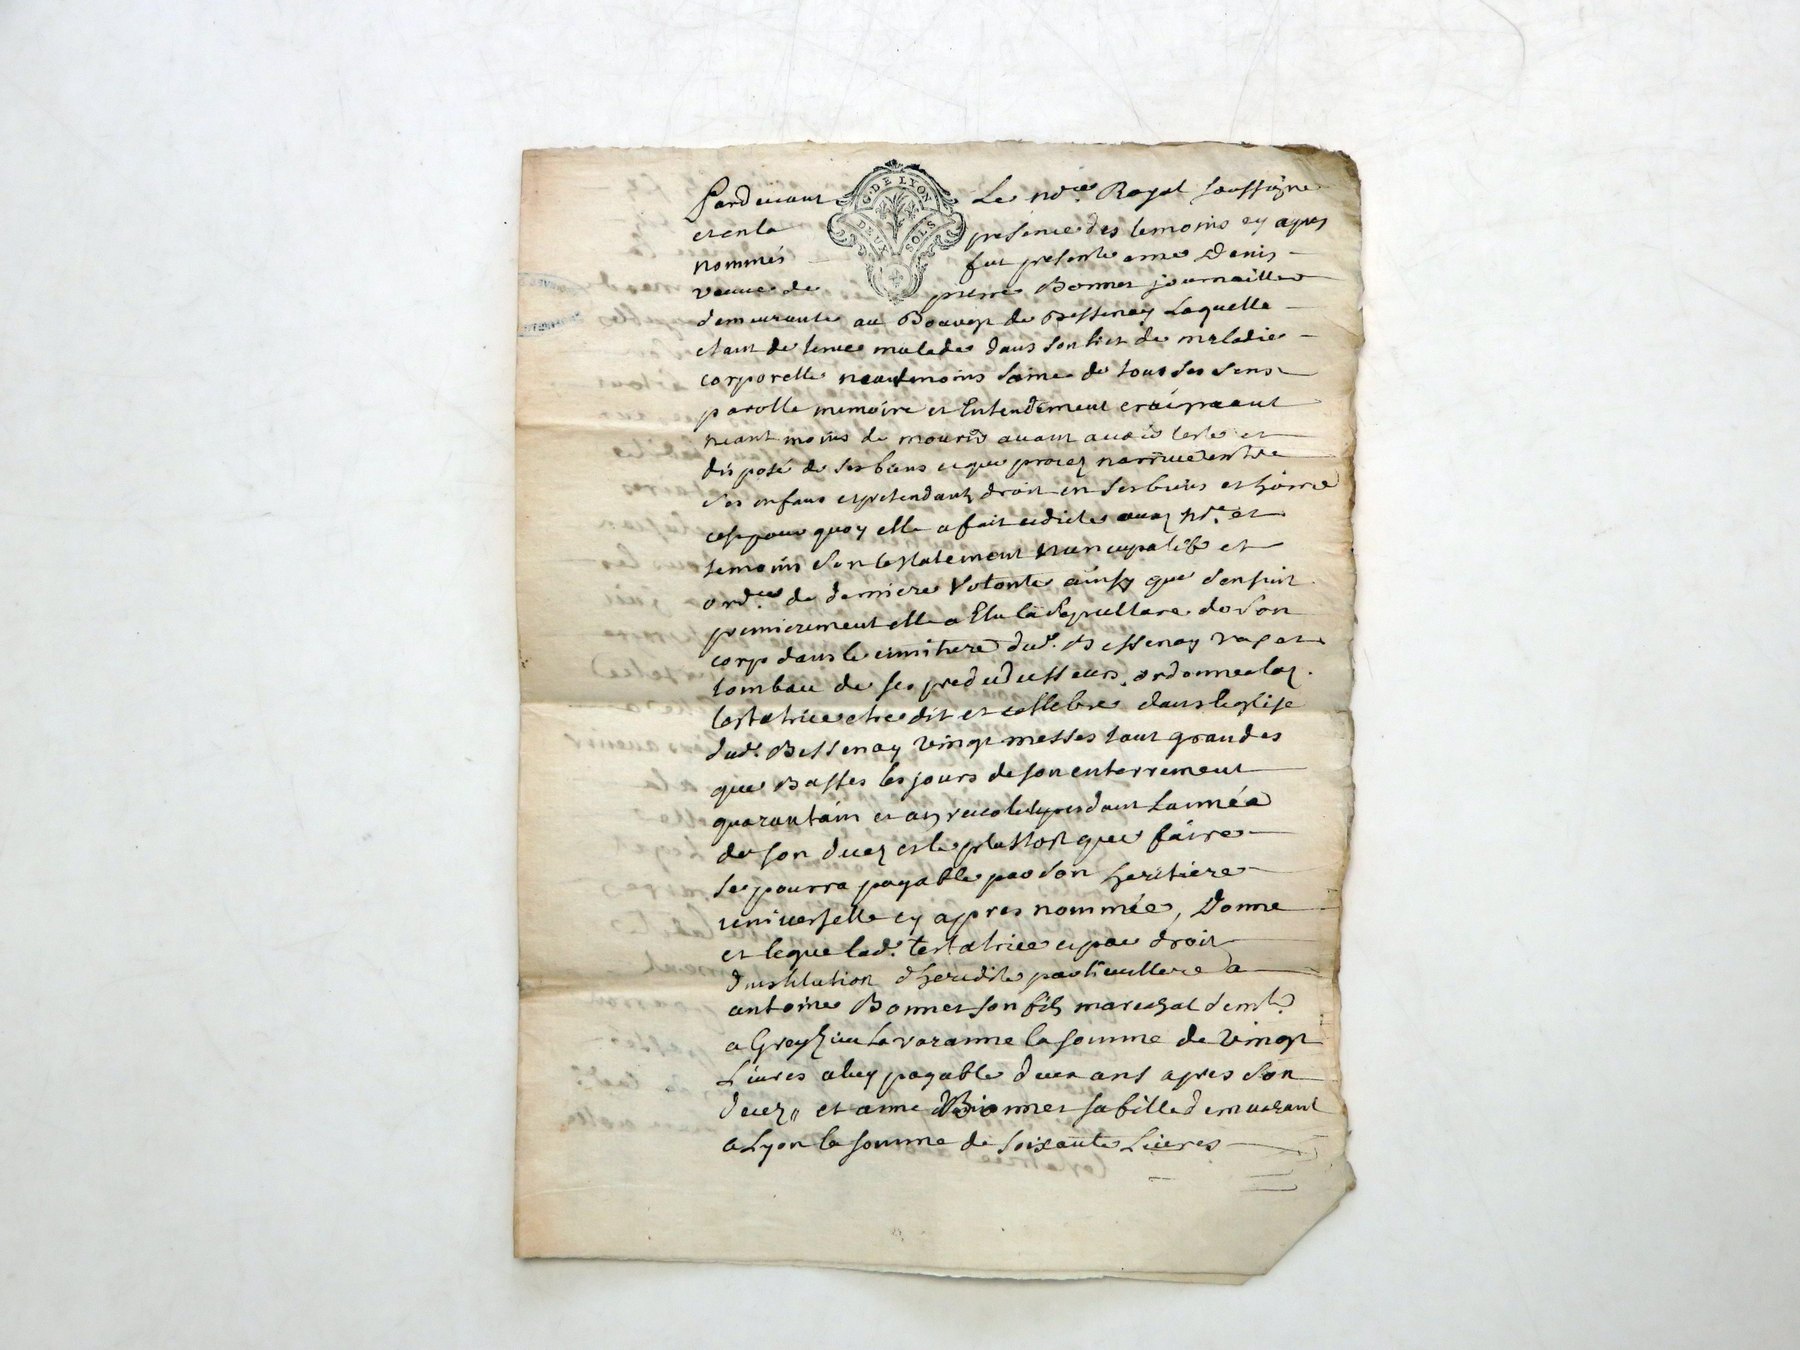 G. DE LYON
DEUX SOLS
Pardevant Le no.re Royal soussigne
et en la presence des temoins cy apres
nommés fut presente anne Denis
veuve de pierre Bonnet journaillier
demeurante au Bourg de Bessenay Laquelle
etant detenue malade dans son lict de maladie
corporelle neantmoins saine de tous ses sens
parolle memoire et Entendement craignant
neantmoins de mourir avant avoir testé et
disposé de ses biens et que procez narrive entre
ses enfans et pretendants droit en ses biens et hoirie
cest pour quoy elle a fait et dicté auxd no.re et
temoins son testatement nuncupatif et
ord.ce de derniere Volonté ainsy que sensuit
premierement elle a Elu la sepulture de son
corp dans le cimitiere dud. Bessenay vas et
tombau de ses predecesseurs, ordonne lad.
testatrice etre dit et cellebre dans leglise
dud. Bessenay vingt messes tant grandes
que Basses les jours de son enterrement
quarantain et pendant Lannéa
de son decez et le plustost que faire
se pourra payable par son heritiere
universelle cy apres nommée, Donne
et legue lad. testatrice et par droit
dinstitution dheredité particulliere a
antoine Bonnet son fils marechal dem.t
a la varanne la somme de vingt
Livres a luy payable deux ans apres son
decez, et anne Bonnet sa fille demeurant
a Lyon la somme de soixante Livres